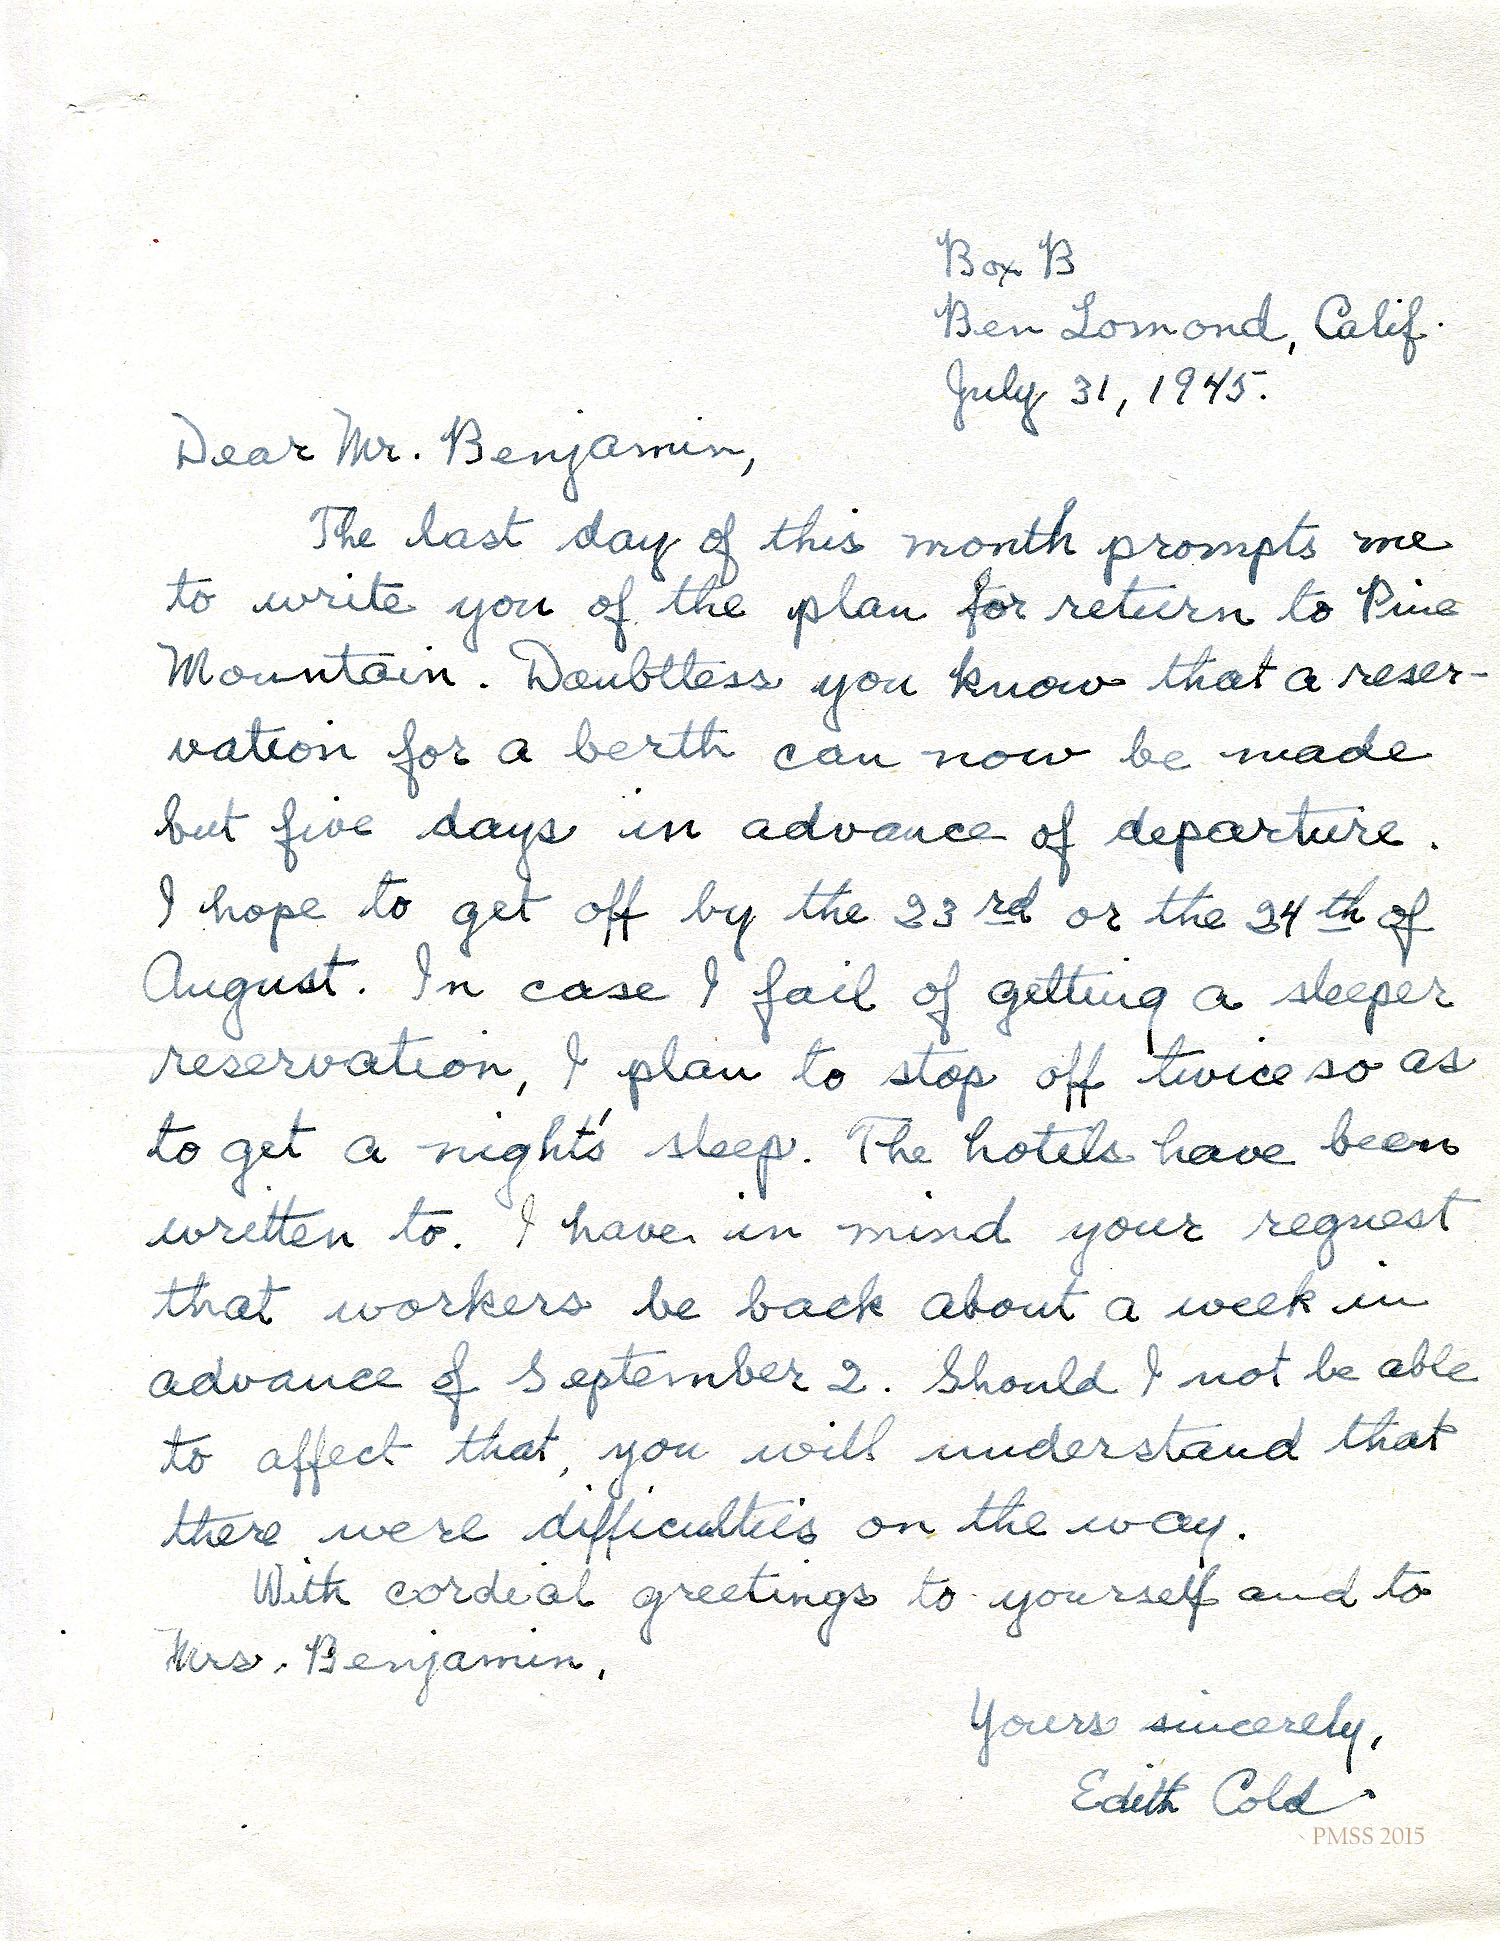 Box B
Ben Lomond, Calif.
July 31, 1945.
Dear Mr. Benjamin,
The last day of this month prompts me
to write you of the plan for return to Pine
Mountain. Doubtless you know that a reser-
vation for a berth can now be made
but five days in advance of departure.
I hope to get off by the 23rd or the 24th of
August. In case I fail of getting a sleeper
reservation, I plan to stop off twice so as
to get a night's sleep. The hotels have been
written to. I have in mind your request
that workers be back about a week in
advance of September 2. Should I not be able
to affect that, you will understand that
there were difficulties on the way.
With cordial greetings to yourself and to
Mrs. Benjamin,
Yours sincerely,
Edith Cold.
PMSS 2015